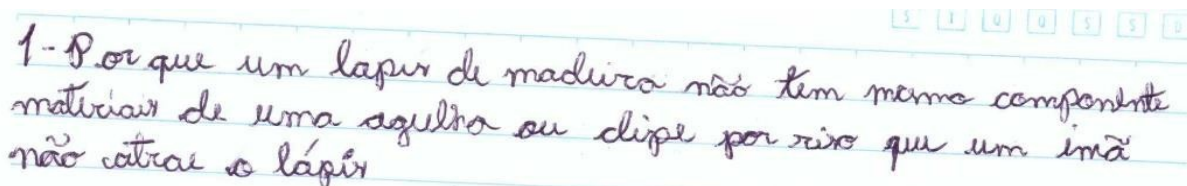 S I Q Q S S D
1-Por que um lapis de madeira não tem mesmo componente
materiais de uma agulha ou clipe por isso que um imã
não atrai o lápis